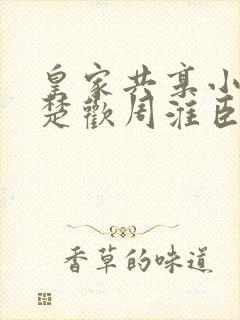 皇家共享小
楚歡周淮臣
香草的味道